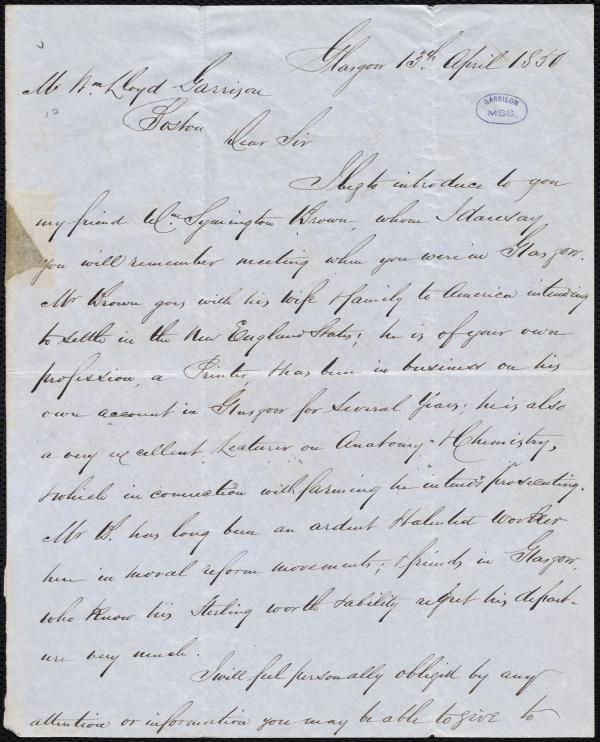 Glasgow 13th April 1850
Mr Wm Lloyd Garrison
Boston
GARRISON
MSS.
Dear Sir
I beg to introduce to you
my friend Wm Symington Brown, whom I daresay
you will remember meeting when you were in Glasgow.
Mr Brown goes with his wife & family to America intending
to settle in the New England States; he is of your own
profession, a Printer, & has been in business on his
own account in Glasgow for several Years. he is also
a very excellent Lecturer on Anatomy & Chemistry,
& which in connection with farming he intends prosecuting.
Mr B. has long been an ardent & talented worker
here in moral reform movements; & friends in Glasgow,
who know his Sterling worth & ability regret his depart-
ure very much.
I will feel personally obliged by any
attention or information you may be able to give to